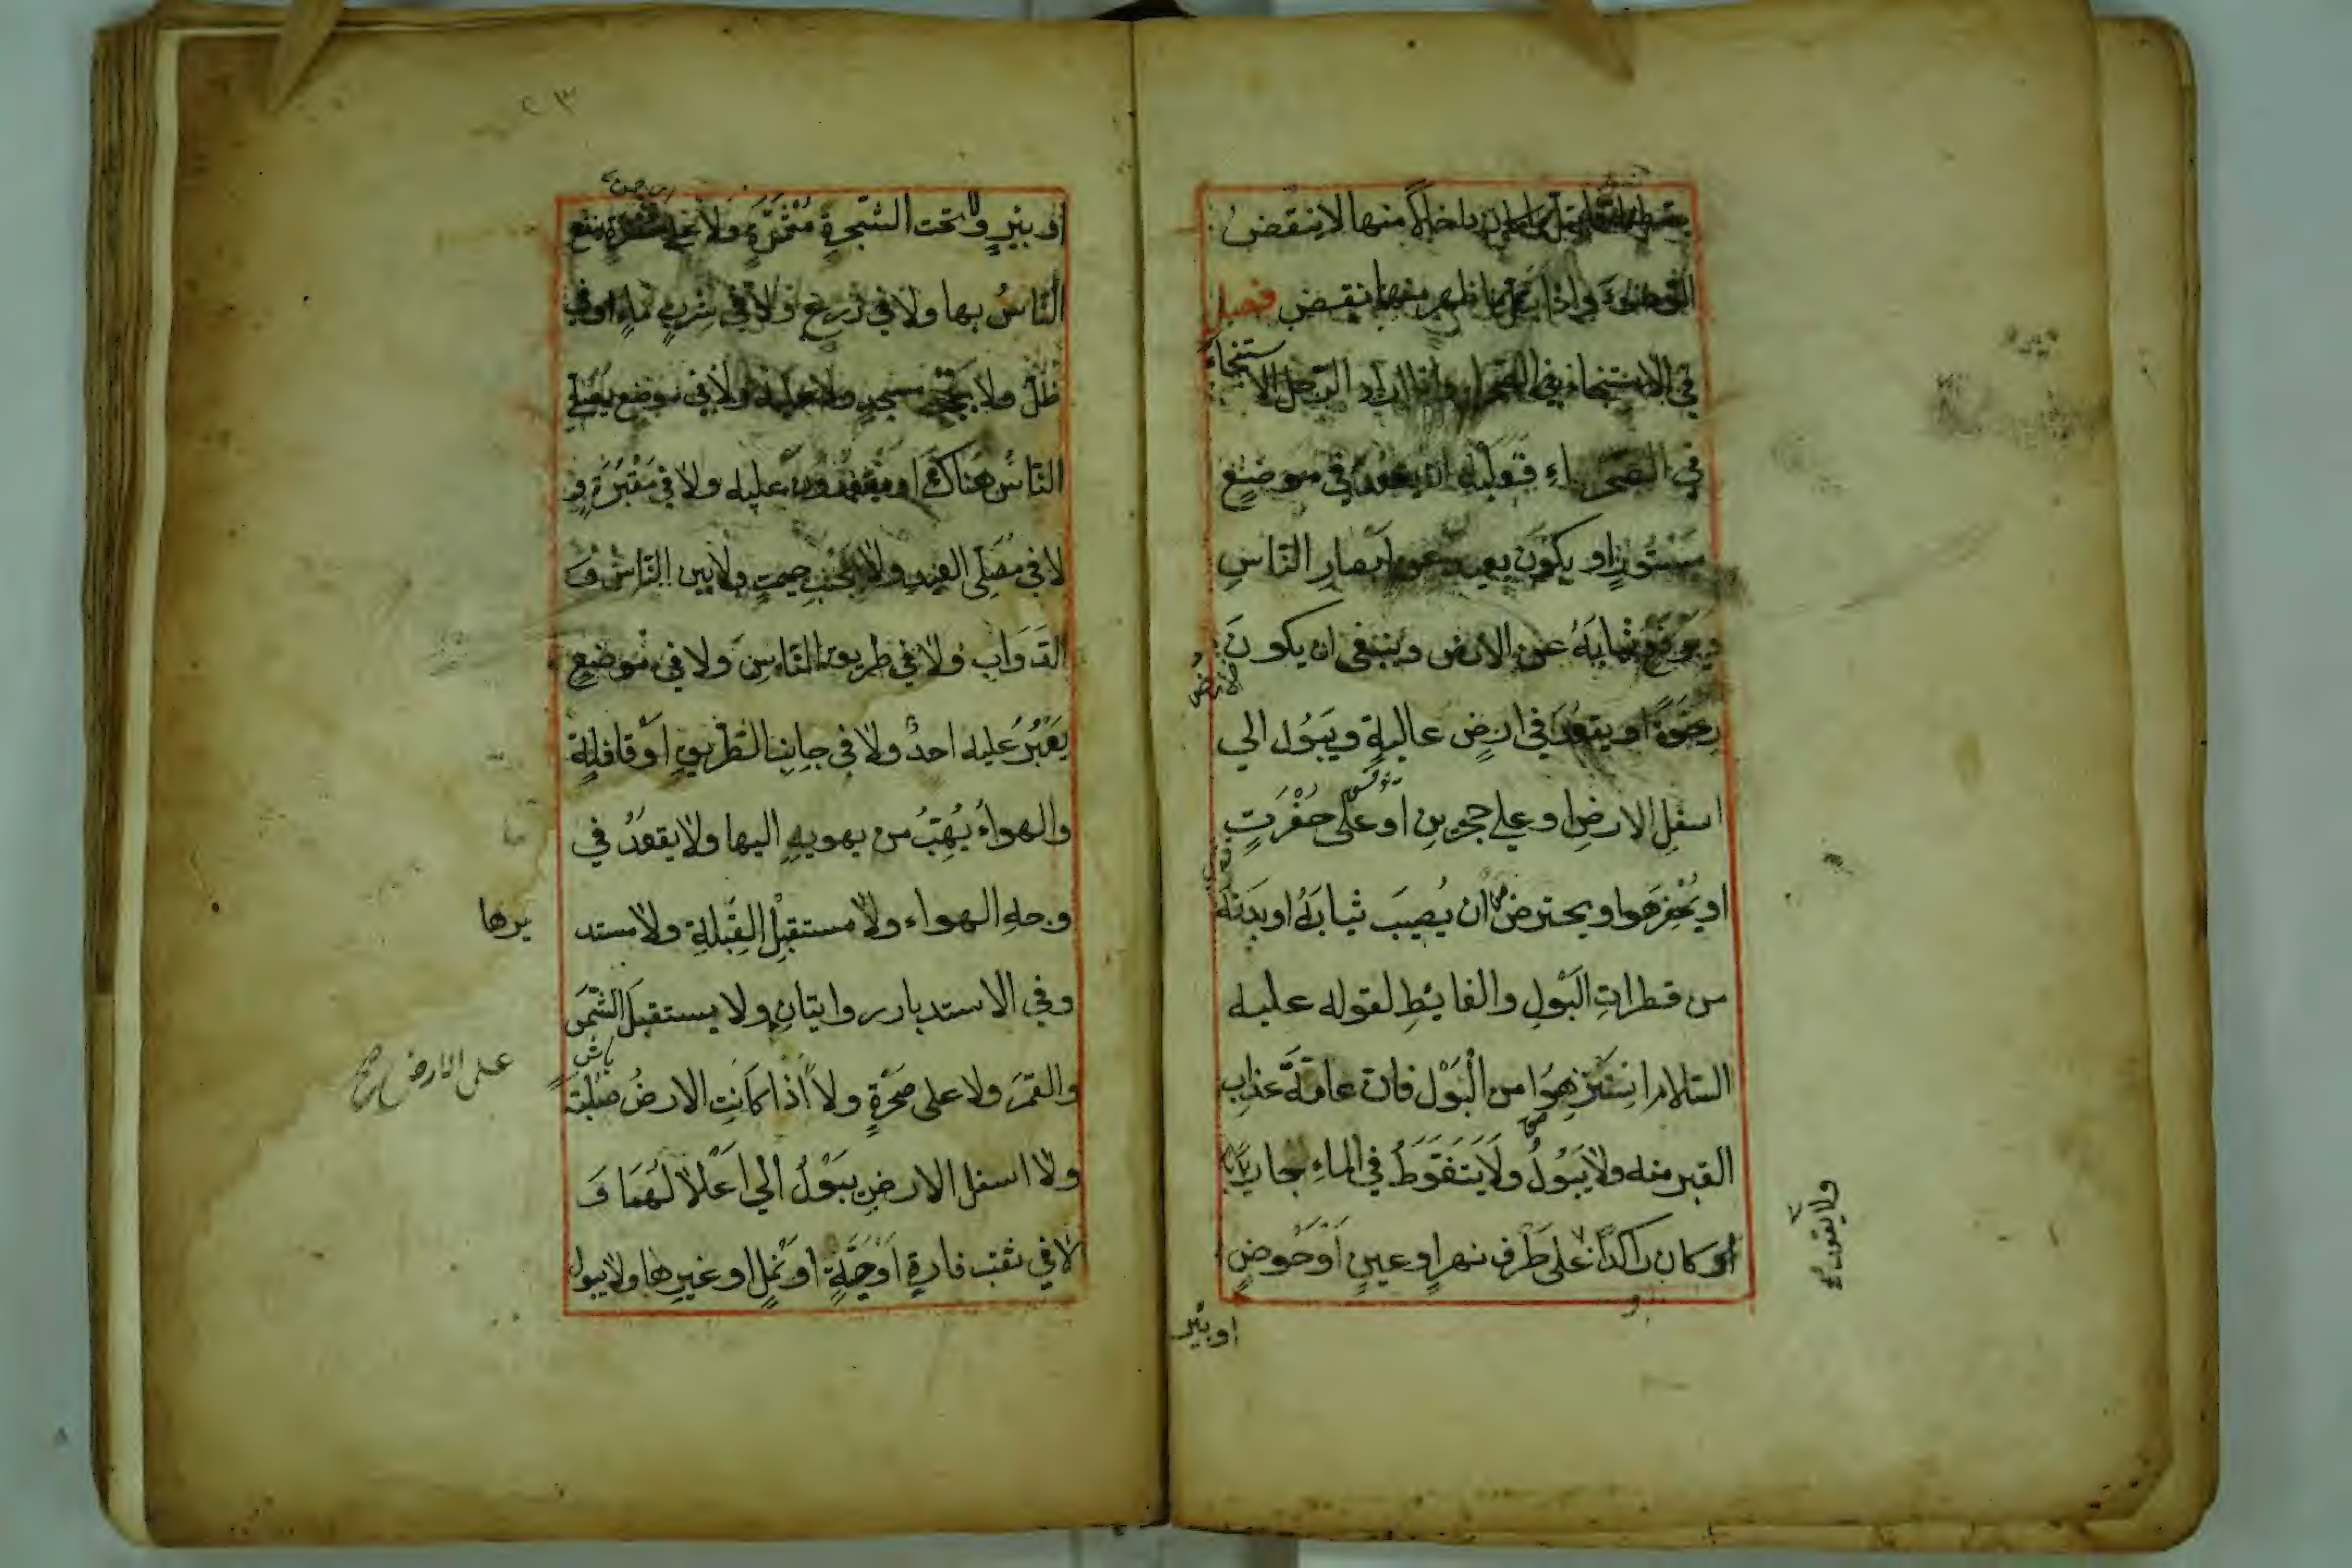 داخلا منها لا ينقض
الوضوء واذا ظهر منها ينقض فصل
في الاستنجاء في الصحراء واذا اراد الرجل الاستنجاء
في الصحراء فعليه ان يقعد في موضع
مستور او يكون بعيد عن ابصار الناس
ويرفع ثيابه عن الارض وينبغي ان يكون
الارض
رخوة او يقعد في ارض عالية ويبول الي
اسفل الارض او علي حجرين او على حفرت
او يحفرها ويحترض ان يصيب ثيابه او بدنه
من قطرات البول والغايط لقوله عليه
السلام استنزهوا من البول فان عامة عذاب
القبر منه ولا يبول ولا يتغوط في الماء جاريا
او كان راكدا على طرف نهر او عين او حوض
ولا يقعد
او بئر
٢٣
او بئر ولا تحت الشجرة مثمرة ولا ينفع
الناس بها ولا في زرع ولا في شرب ماء او في
ظل ولا بجنب مسجد ولا عليه ولا في موضع يصلي
الناس هناك او يقعدون عليه ولا في مقبرة و
لا في مصلى العيد ولا بجنب خيمة ولا بين الناس و
الدواب ولا في طريق الناس ولا في موضع
يعبر عليه احد ولا في جانب الطريق او قافلة
والهواء يهب من يهويه اليها ولا يقعد في
وجه الهواء ولا مستقبل القبلة ولا مستد
برها
وفي الاستدبار روايتان ولا يستقبل الشمس
والقمر ولا على صخرة ولا اذا كانت الارض صلبة
على الارض صح
ولا اسفل الارض يبول الي اعلا لهما و
لا في ثقب فارة او حية او نمل او غيرها ولا يبول